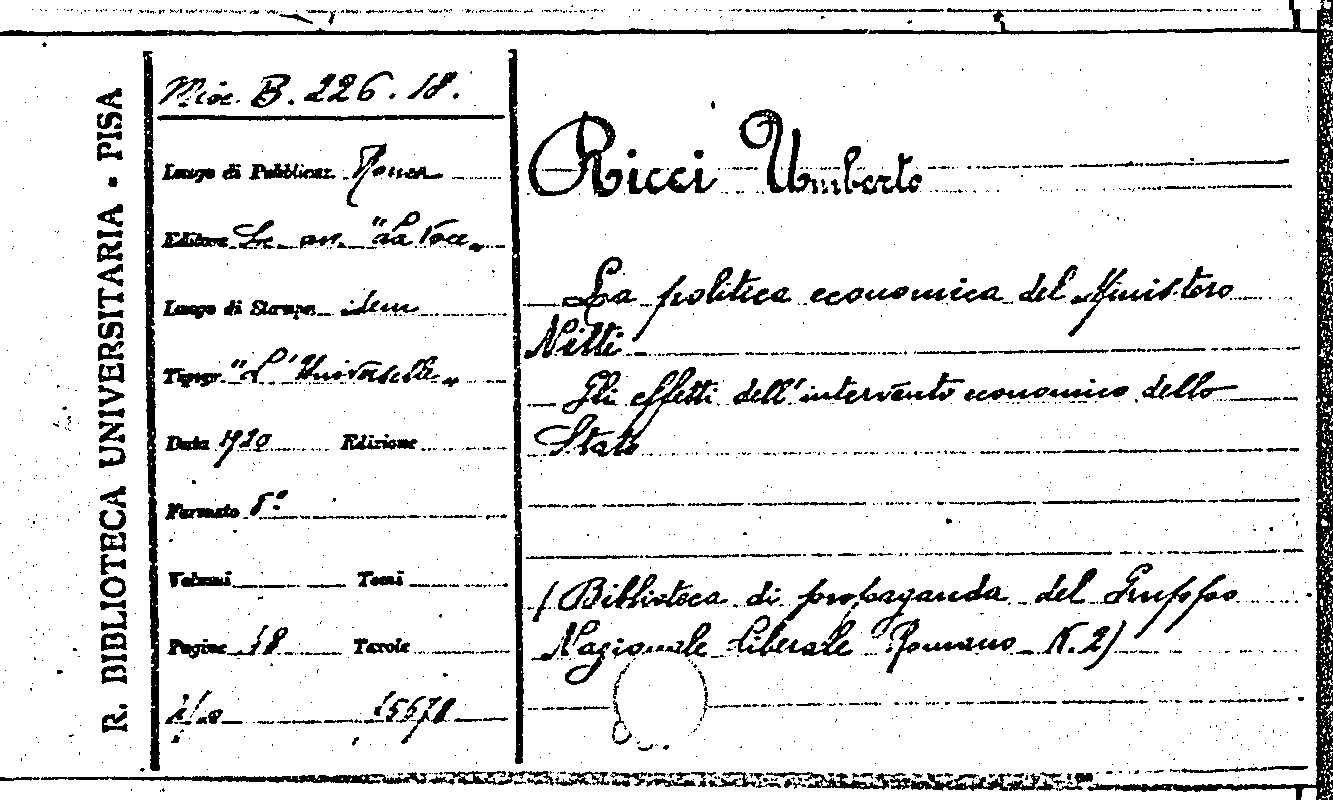 R. BIBLIOTECA UNIVERSITARIA - PISA
Misc. B. 226. 18.
Luogo di Pubblicaz. Roma
Editore Soc. an. "La Voce"
Luogo di Stampa idem
Tipogr. "L'Universelle"
Data 1920 Edizione
Formato 8°
Volumi Tomi
Pagine 18 Tavole
15678
Ricci Umberto
La politica economica del Ministero
Nitti
Gli effetti dell'intervento economico dello
Stato
(Biblioteca di propaganda del Gruppo
Nazionale liberale Romano N. 2)